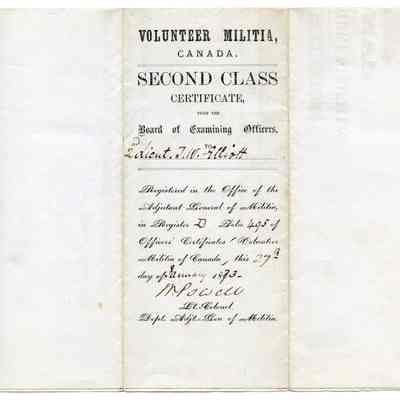 VOLUNTEER MILITIA,
CANADA.
SECOND CLASS
CERTIFICATE,
FROM THE
Board of Examining Officers.
2d Lieut. J. W. Elliott
Registered in the Office of the
Adjutant General of Militia,
in Register D Folio 495 of
Officers' Certificates Volunteer
Militia of Canada, this 27th
day of January 1873.
W Powell
Lt. Colonel
Dept. Adjt. Gen of Militia.